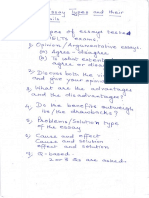 Essay Types and their
Types of essays tested
IELTS exams.
1) Opinion/Argumentative essay:
(a) agree-disagree
(b) To what extent
agree or disa
2) Discuss both the vi
and give your opinion
3) What are the advantages
and the disadvantages?
4) Do the benefits outweigh
the/drawbacks?
5) Problems/Solution type
of the essay
6) Cause and effect
Cause and solution
Effect and solution
7) Q-based-
2 or 3 Qs are asked: